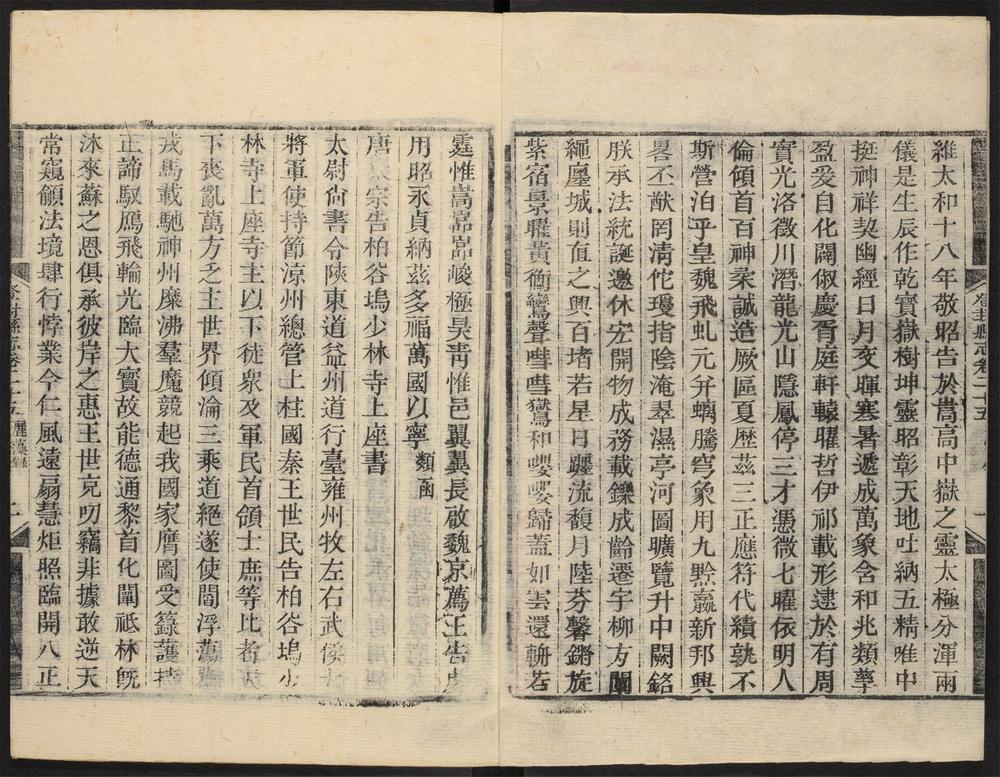 維太和十八年敬昭告於嵩高中嶽之靈太極分渾兩
儀是生辰作乾寶嶽樹坤靈昭彰天地吐納五精唯中
挺神祥契幽經日月交暉寒暑遞成萬象含和兆類孳
盈爰自化闢俶慶胥庭軒轅曜哲伊祁載形逮於有周
實光洛徵川潛龍光山隱鳳停三才憑微七曜依明人
倫傾首百神柔誠造厥區夏歷茲三正應符代績孰不
斯營泊乎皇魏飛虬元弁螭騰穹象用九黙嬴新邦興
畧不猷罔清佗瓊指陰淹翠濕亭河圖曠覽升中闕銘
朕承法統誕邀休宏開物成務載鑠成齡遷宇柳方闡
繩廛城則直之興百堵若星日躔流馥月陸芬馨鏘旋
紫宿景曜黃衡鸞聲嘒嘒鸑和嚶嚶歸蓋如雲還輧若
霆惟嵩嵓嵓峻極昊靑惟邑翼翼長啟魏京薦王告虔
用昭永貞納茲多福萬國以寧 類函
唐太宗告柏谷塢少林寺上座書
太尉尙書令陝東道益州道行臺雍州牧左右武侯大
將軍使持節涼州總管上柱國秦王世民告柏谷塢少
林寺上座寺主以下徒衆及軍民首領士庶等比者天
下喪亂萬方乏主世界傾淪三乘道絕遂使閻浮蕩
戎馬載馳神州糜沸羣魔競起我國家膺圖受籙護持
正諦馭鴈飛輪光臨大寶故能德通黎首化闡祗林旣
沐來蘇之恩俱承彼岸之惠王世充叨竊非據敢逆天
常窺䫌法境肆行悖業今仁風遠扇慧炬照臨開八正